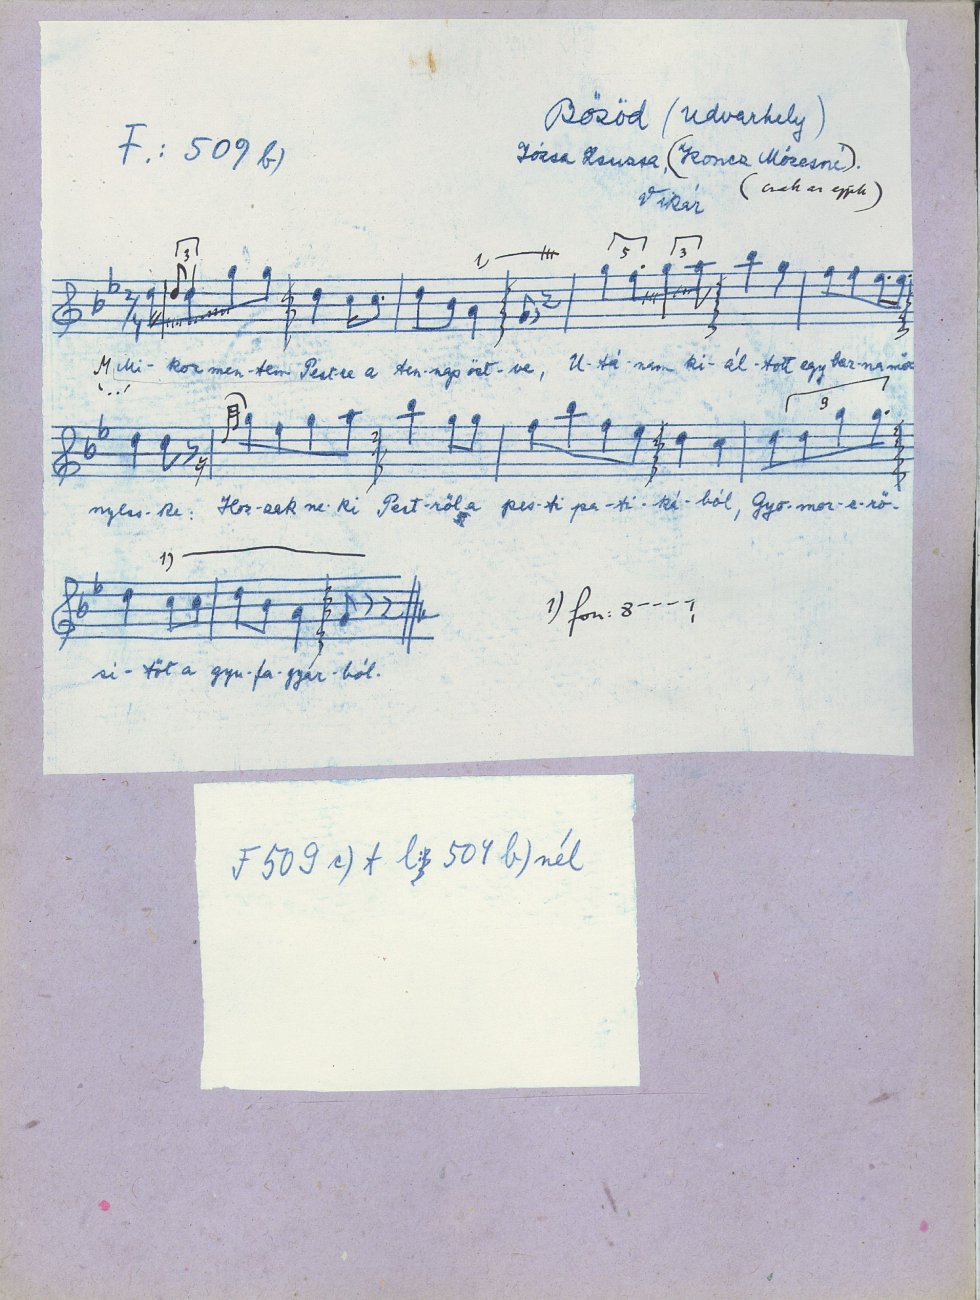 F.: 509 b)
Bözöd (Udvarhely)
Józsa Zsuzsa, (Koncz Mózesné).
(csak az egyik)
Vikár
3
1)
5
3
2/4
Mi- kor men-tem Pest-re a ten-nap öst-ve, U-tá-nam ki-ál-tott egy bar-na
9
nyecs-ke: Hoz-zak ne-ki Pest-ről a pes-ti pa-ti-ká-ból, Gyo-mor-e-rő-
1)
si-töt a gyu-fa-gyár-ból.
1) fon: 8----
F 509 c)
b) nél